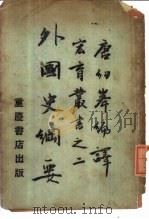 唐幼峯编譯
宏育叢書之二
外國史綱要
重慶書店出版